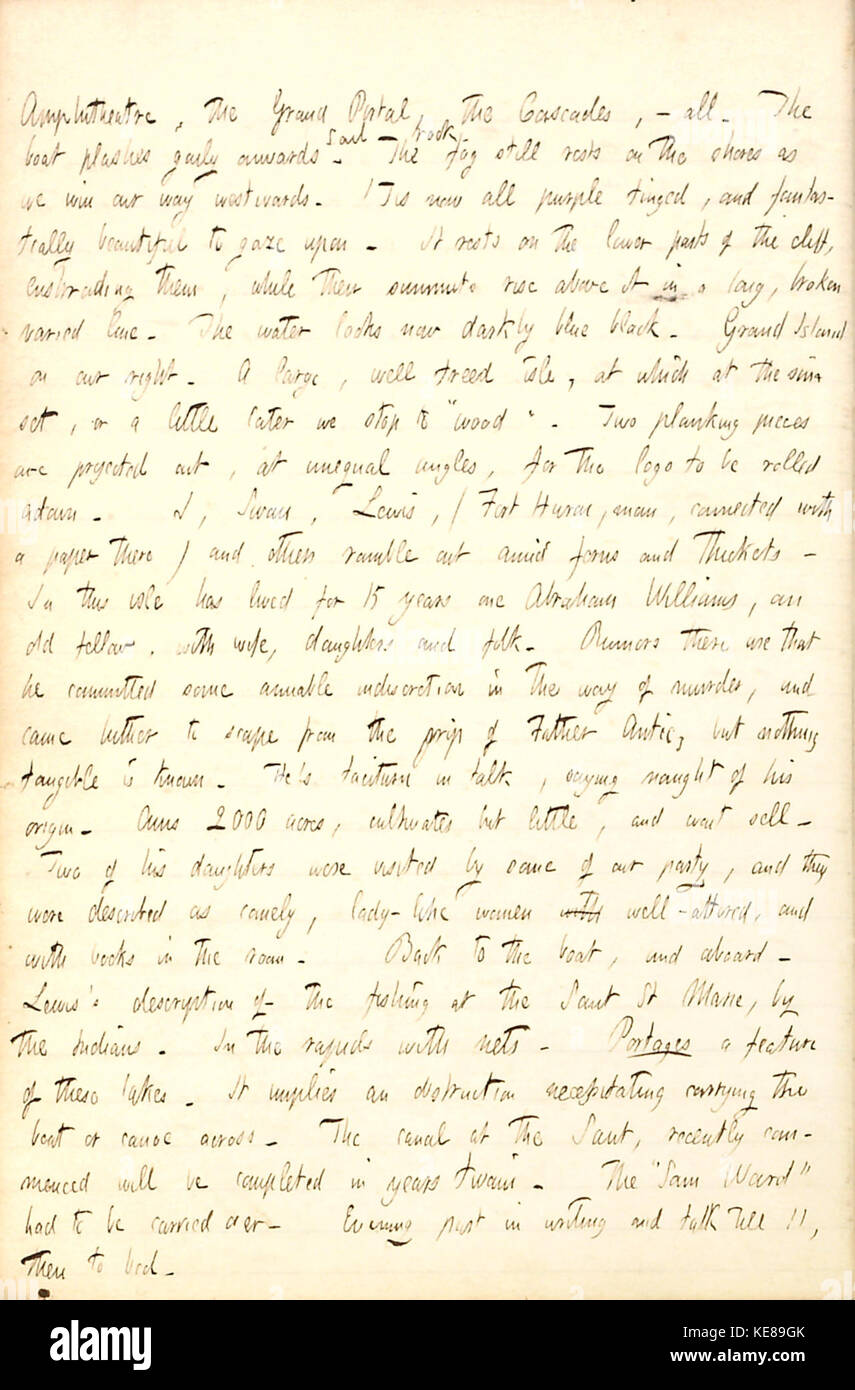 Amphitheatre, the Grand Portal, the Cascades, – all. The
Sail – rock.
boat plashes gaily onwards – The fog still rests on the shores as
we win our way westwards – 'Tis now all purple tinged, and fantas-
tically beautiful to gaze upon – It rests on the lower parts of the cliff,
enshrouding them, while their summits rise above it in a long, broken
varied line – The water looks now darkly blue black – Grand Island
on our right – A large, well treed isle, at which at the sun
set, or a little later we stop to "wood" – Two planking pieces
are projected out, at unequal angles, for the logs to be rolled
adown – I, Swan, Lewis, (Fort Huron, man, connected with
a paper there) and others ramble out amid ferns and thickets –
In this isle has lived for 15 years one Abraham Williams, an
old fellow, with wife, daughters and folk – Rumors there are that
he committed some amiable indiscretion in the way of murder, and
came hither to scape from the grip of Father Antic, but nothing
tangible is known – He's taciturn in talk, saying naught of his
origin – Owns 2000 acres, cultivates but little, and wont sell –
Two of his daughters were visited by some of our party, and they
were described as comely, lady-like women with well-attired, and
with books in the room – Back to the boat, and aboard –
Lewis's description of the fishing at the Saut St Marie, by
the Indians – In the rapids with nets – Portages a feature
of these lakes – It implies an obstruction necessitating carrying the
boat or canoe across – The canal at the Saut, recently com-
menced will be completed in years twain – The "Sam Ward"
had to be carried over – Evening past in writing and talk till 11,
then to bed –
alamy
Image ID: KE89GK
www.alamy.com